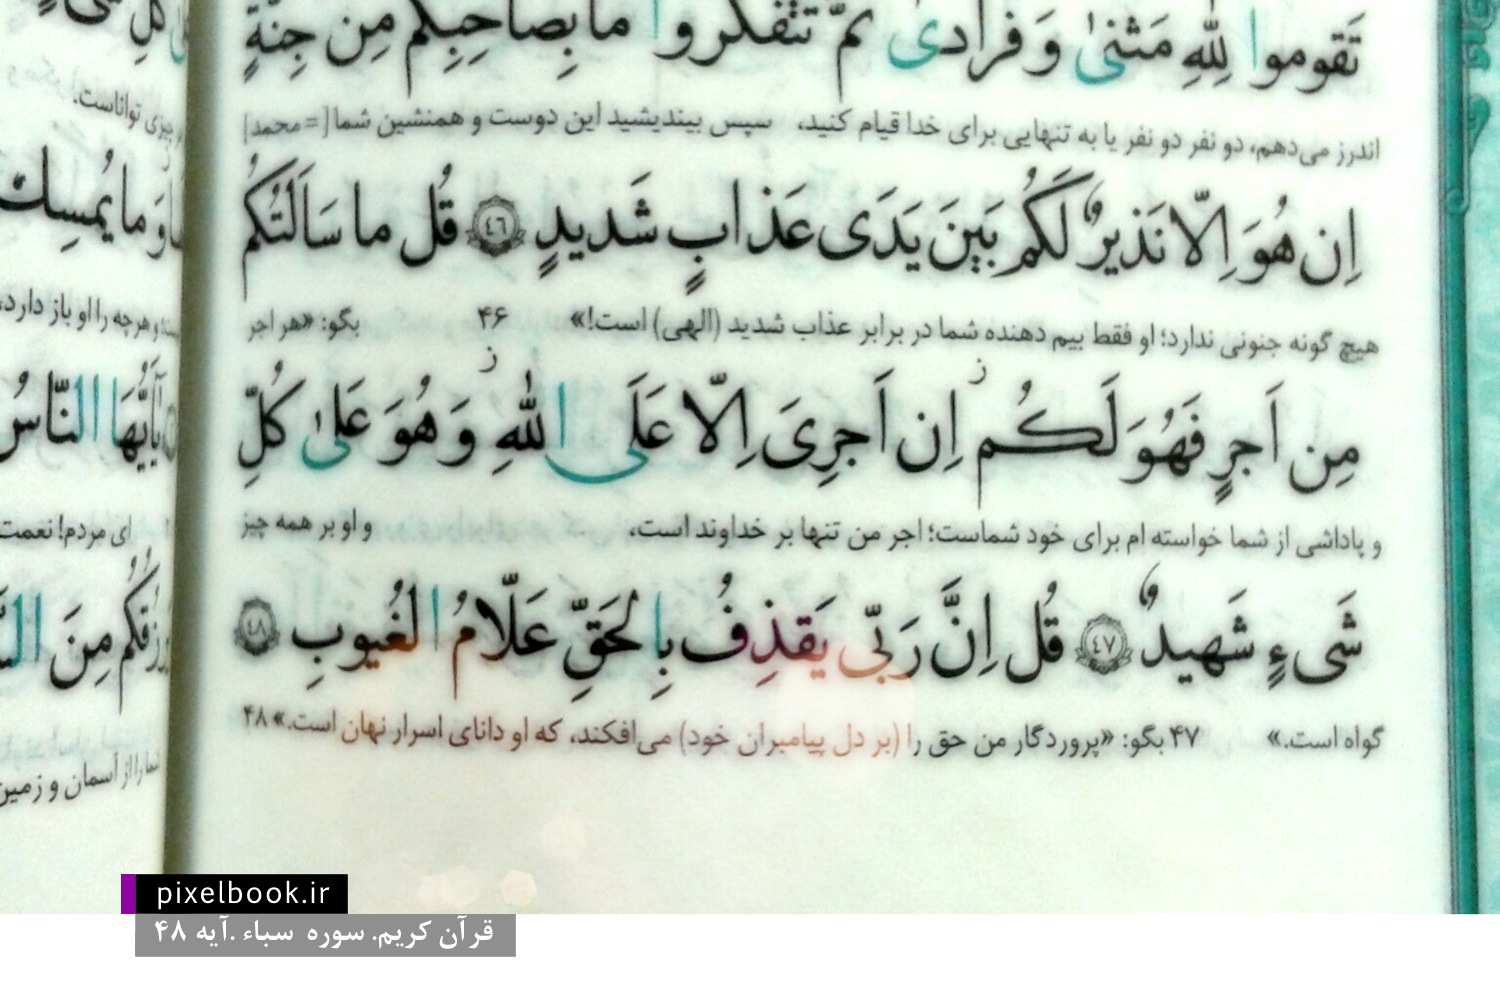 تَقوموا لِلّٰهِ مَثنىٰ وَ فُرادىٰ ثُمَّ تَتَفَكَّروا ما بِصاحِبِكُم مِن جِنَّةٍ
اندرز می‌دهم، دو نفر دو نفر یا به تنهایی برای خدا قیام کنید، سپس بیندیشید این دوست و همنشین شما [= محمد]
اِن هُوَ اِلّا نَذیرٌ لَكُم بَینَ یَدَی عَذابٍ شَدیدٍ ﴿٤٦﴾ قُل ما سَاَلتُكُم
هیچ گونه جنونی ندارد؛ او فقط بیم دهنده شما در برابر عذاب شدید (الهی) است!» ۴۶ بگو: «هر اجر
مِن اَجرٍ فَهُوَ لَكُم اِن اَجرِیَ اِلّا عَلَى اللّٰهِ وَ هُوَ عَلىٰ كُلِّ
و پاداشی از شما خواسته ام برای خود شماست؛ اجر من تنها بر خداوند است، و او بر همه چیز
شَیءٍ شَهیدٌ ﴿٤٧﴾ قُل اِنَّ رَبّی یَقذِفُ بِالحَقِّ عَلّامُ الغُیوبِ ﴿٤٨﴾
گواه است.» ۴۷ بگو: «پروردگار من حق را (بر دل پیامبران خود) می‌افکند، که او دانای اسرار نهان است.» ۴۸
تواناست.
وَ ما یُمسِك
و هرچه را او باز دارد،
یٰۤاَیُّهَا النّاسُ
ای مردم! نعمت
مِنَ
شما را از آسمان و زمین
pixelbook.ir
قرآن کریم. سوره سباء .آیه ۴۸